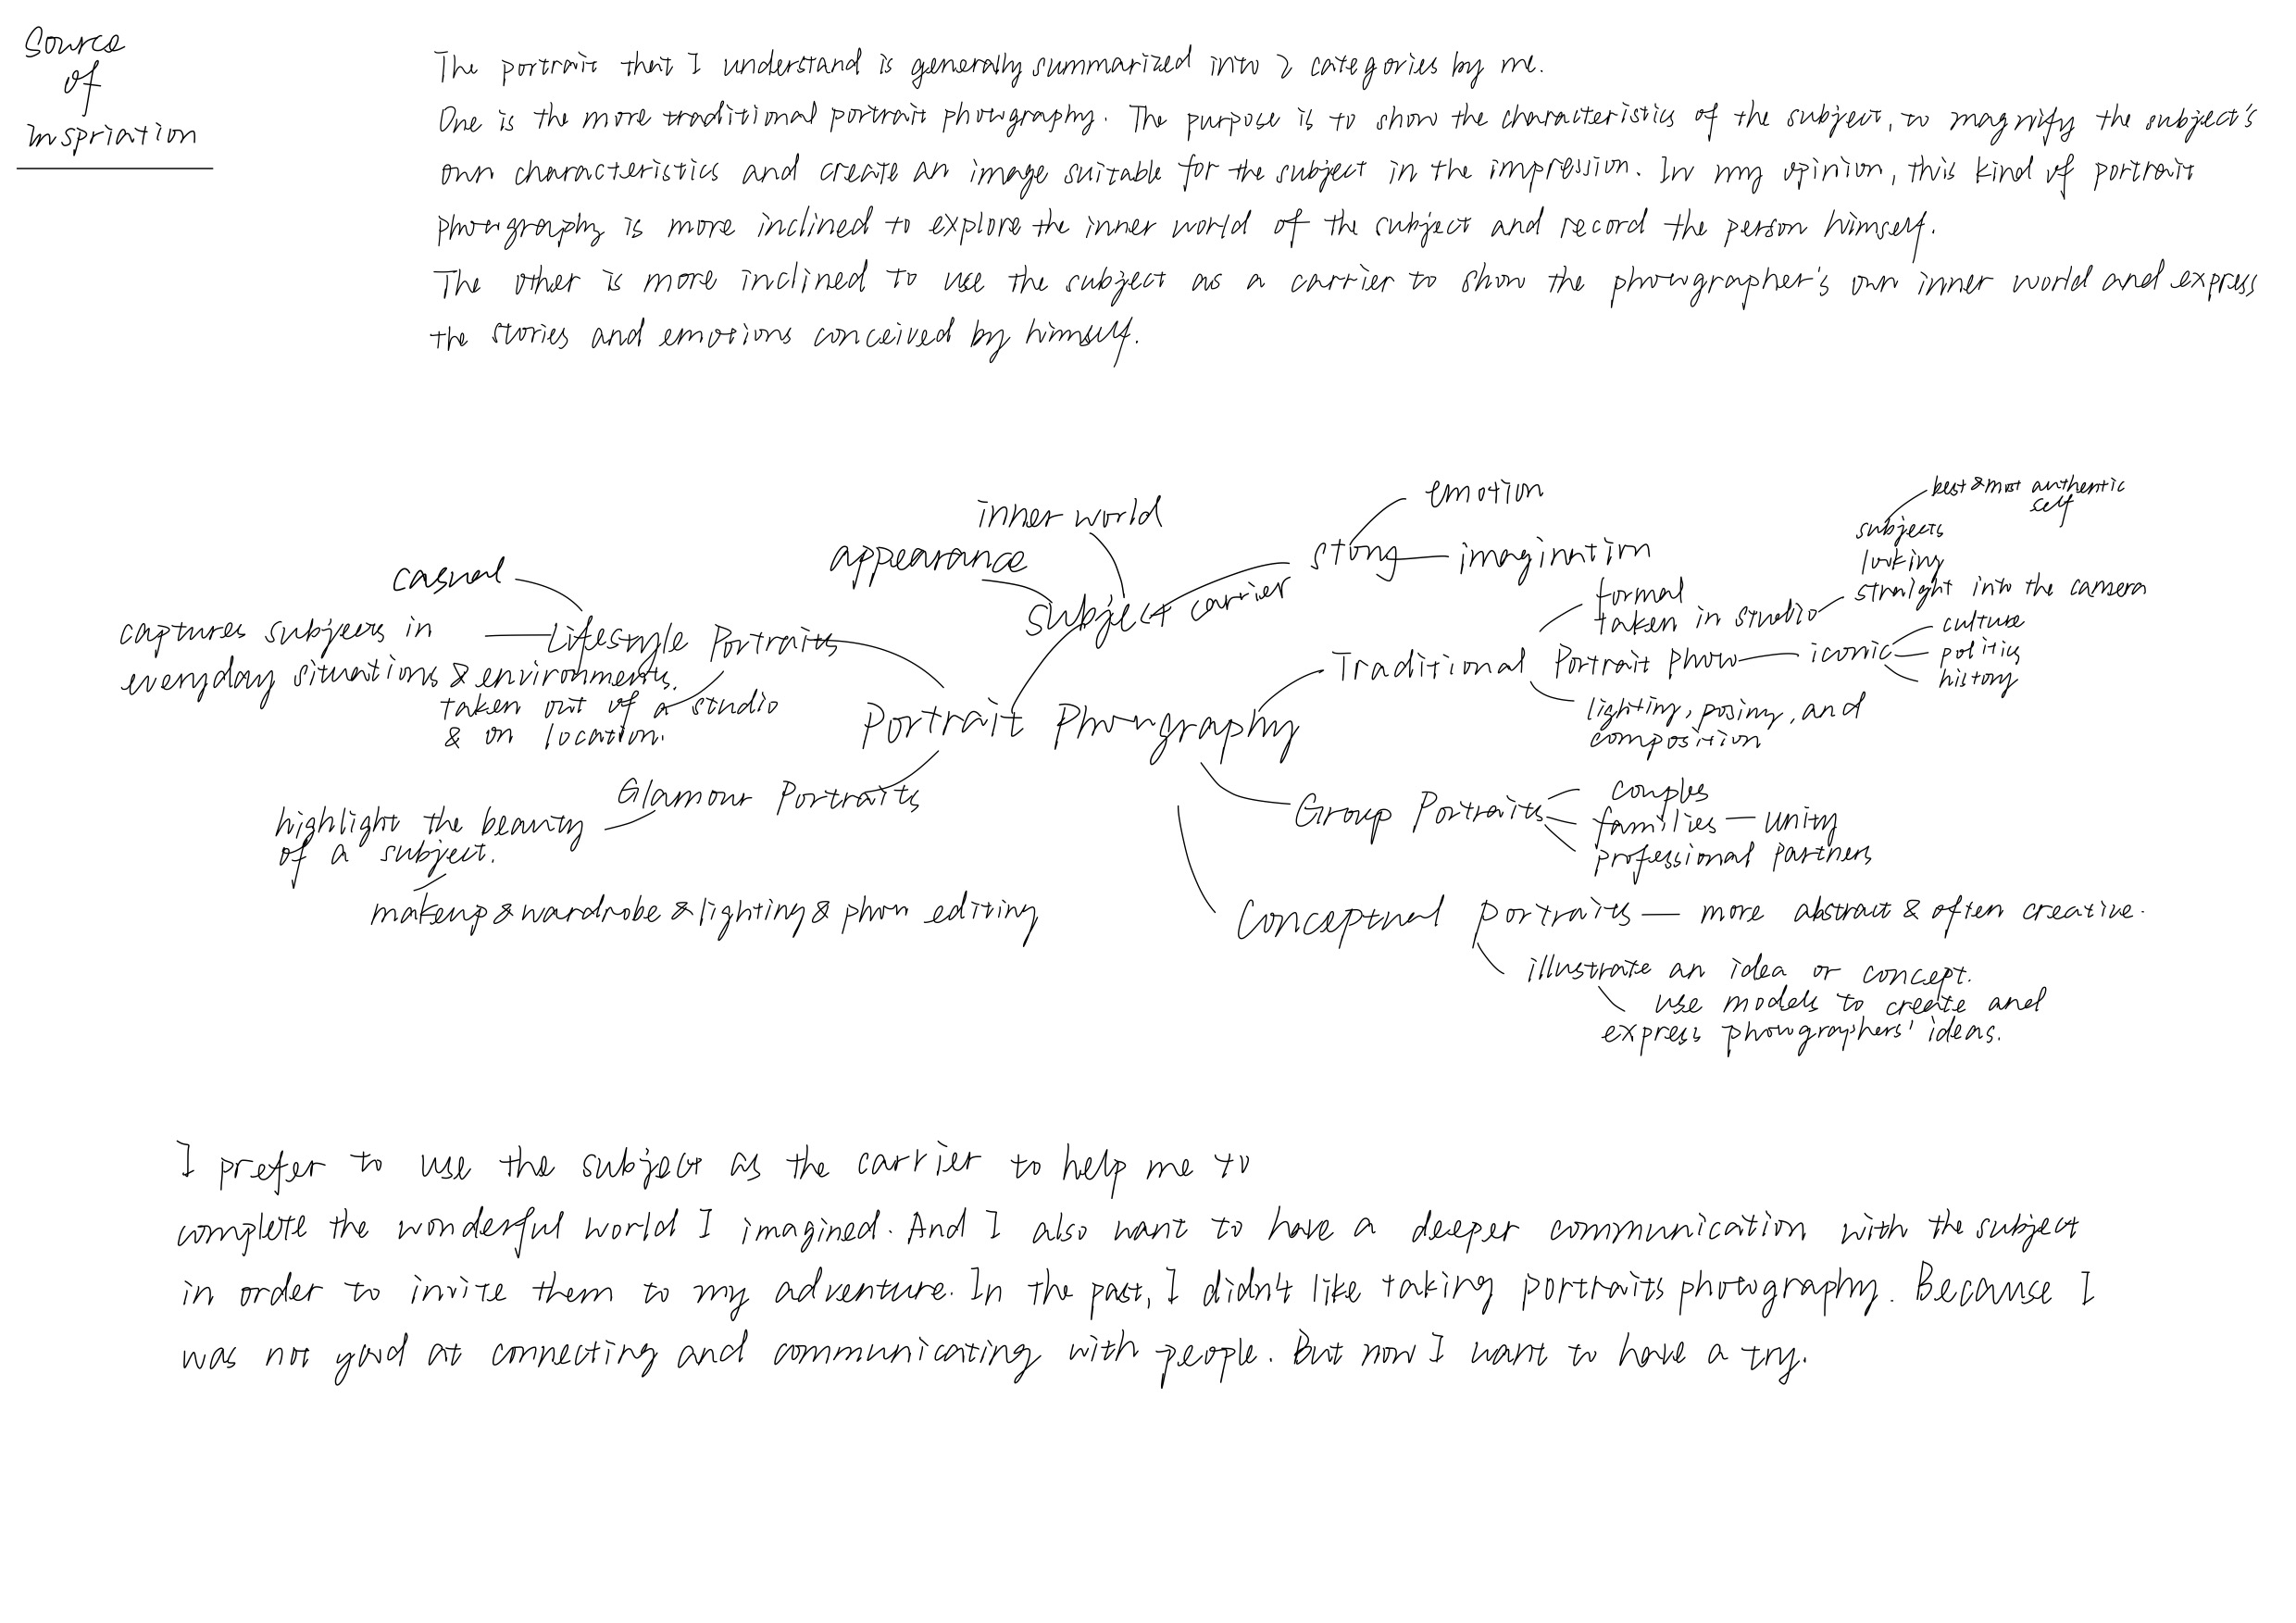 Source
of
Inspriation
The portrait that I understand is generally summarized into 2 categories by me.
One is the more traditional portrait photography. The purpose is to show the characteristics of the subject, to magnify the subject's
own characteristics and create an image suitable for the subject in the impression. In my opinion, this kind of portrait
photography is more inclined to explore the inner world of the subject and record the person himself.
The other is more inclined to use the subject as a carrier to show the photographer's own inner world and express
the stories and emotions conceived by himself.
Portrait Photography
subject
appearance
inner world
carrier
emotion
imagination
Lifestyle Portraits
casual
captures subjects in
everyday situations & environments.
taken out of a studio
& on location.
Glamour Portraits
highlight the beauty
of a subject.
makeup & wardrobe & lighting & photo editing
Traditional Portrait photo
formal
taken in studio
subjects
looking
straight into the camera
best & most authentic
self
iconic
culture
politics
history
lighting, posing, and
composition
Group Portraits
couples
families — unity
professional partners
Conceptual portraits — more abstract & often creative.
illustrate an idea or concept.
use models to create and
express photographers' ideas.
I prefer to use the subject as the carrier to help me to
complete the wonderful world I imagined. And I also want to have a deeper communication with the subject
in order to invite them to my adventure. In the past, I didn't like taking portraits photography. Because I
was not good at connecting and communicating with people. But now I want to have a try.